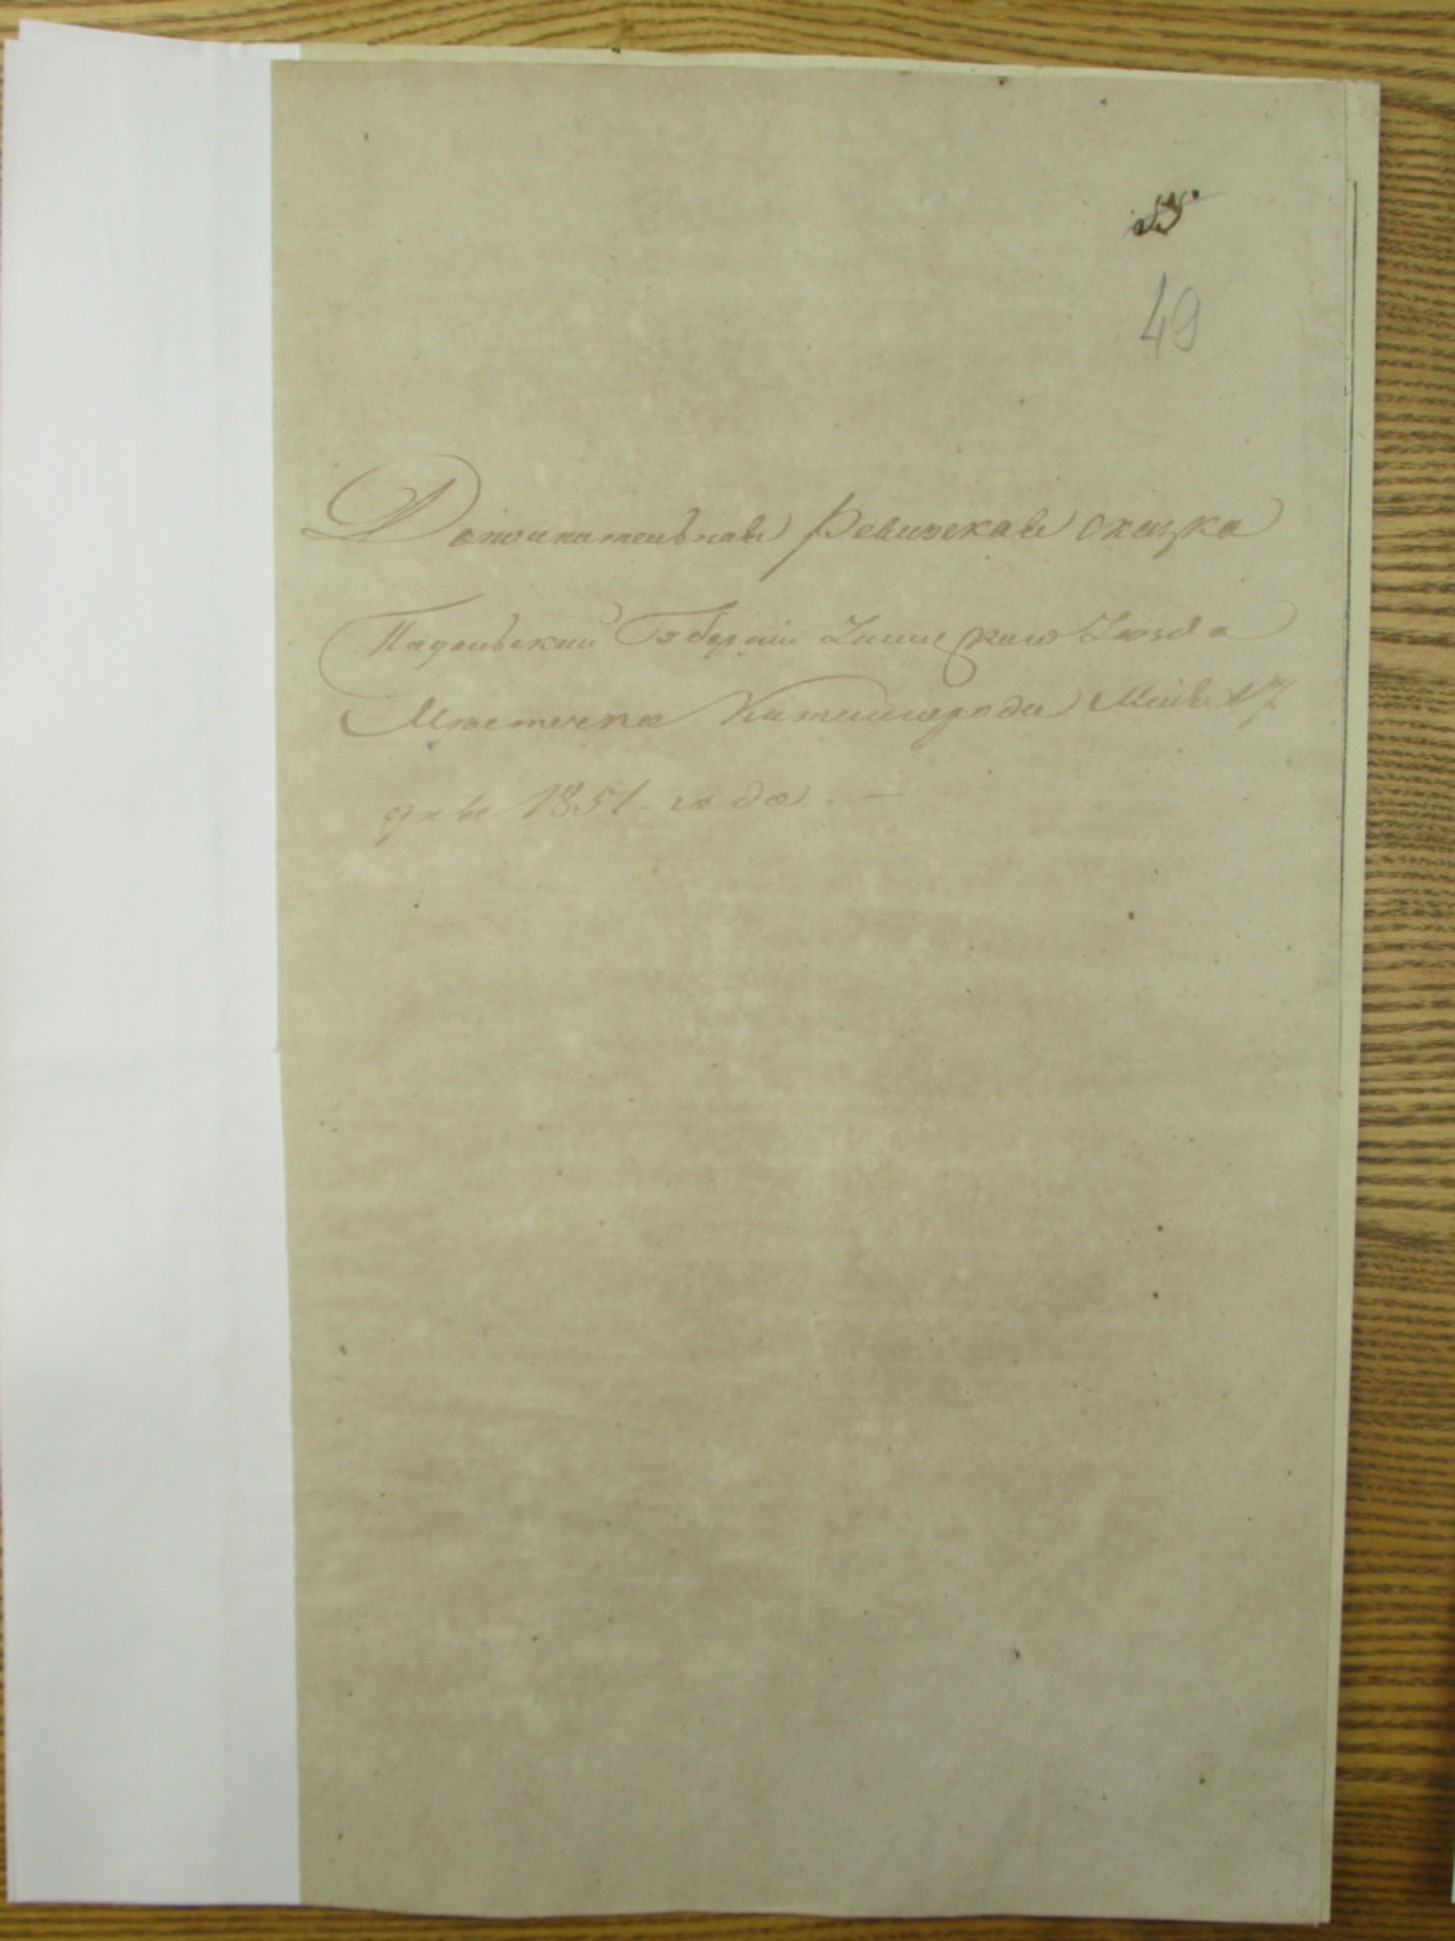 49
Дополнительная Ревизская сказка
Падольский Губернии Ушицкого Уезда
Местечка Китайгорода Мая 17
дня 1851 года. —